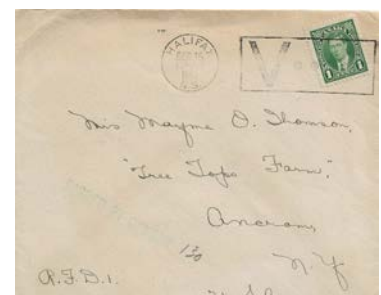 HALIFAX
N.S.
V...
CANADA
1 1
Miss Mayme O. Thomson,
"Tree Tops Farm",
Ancram,
N.Y.
R.F.D.1.